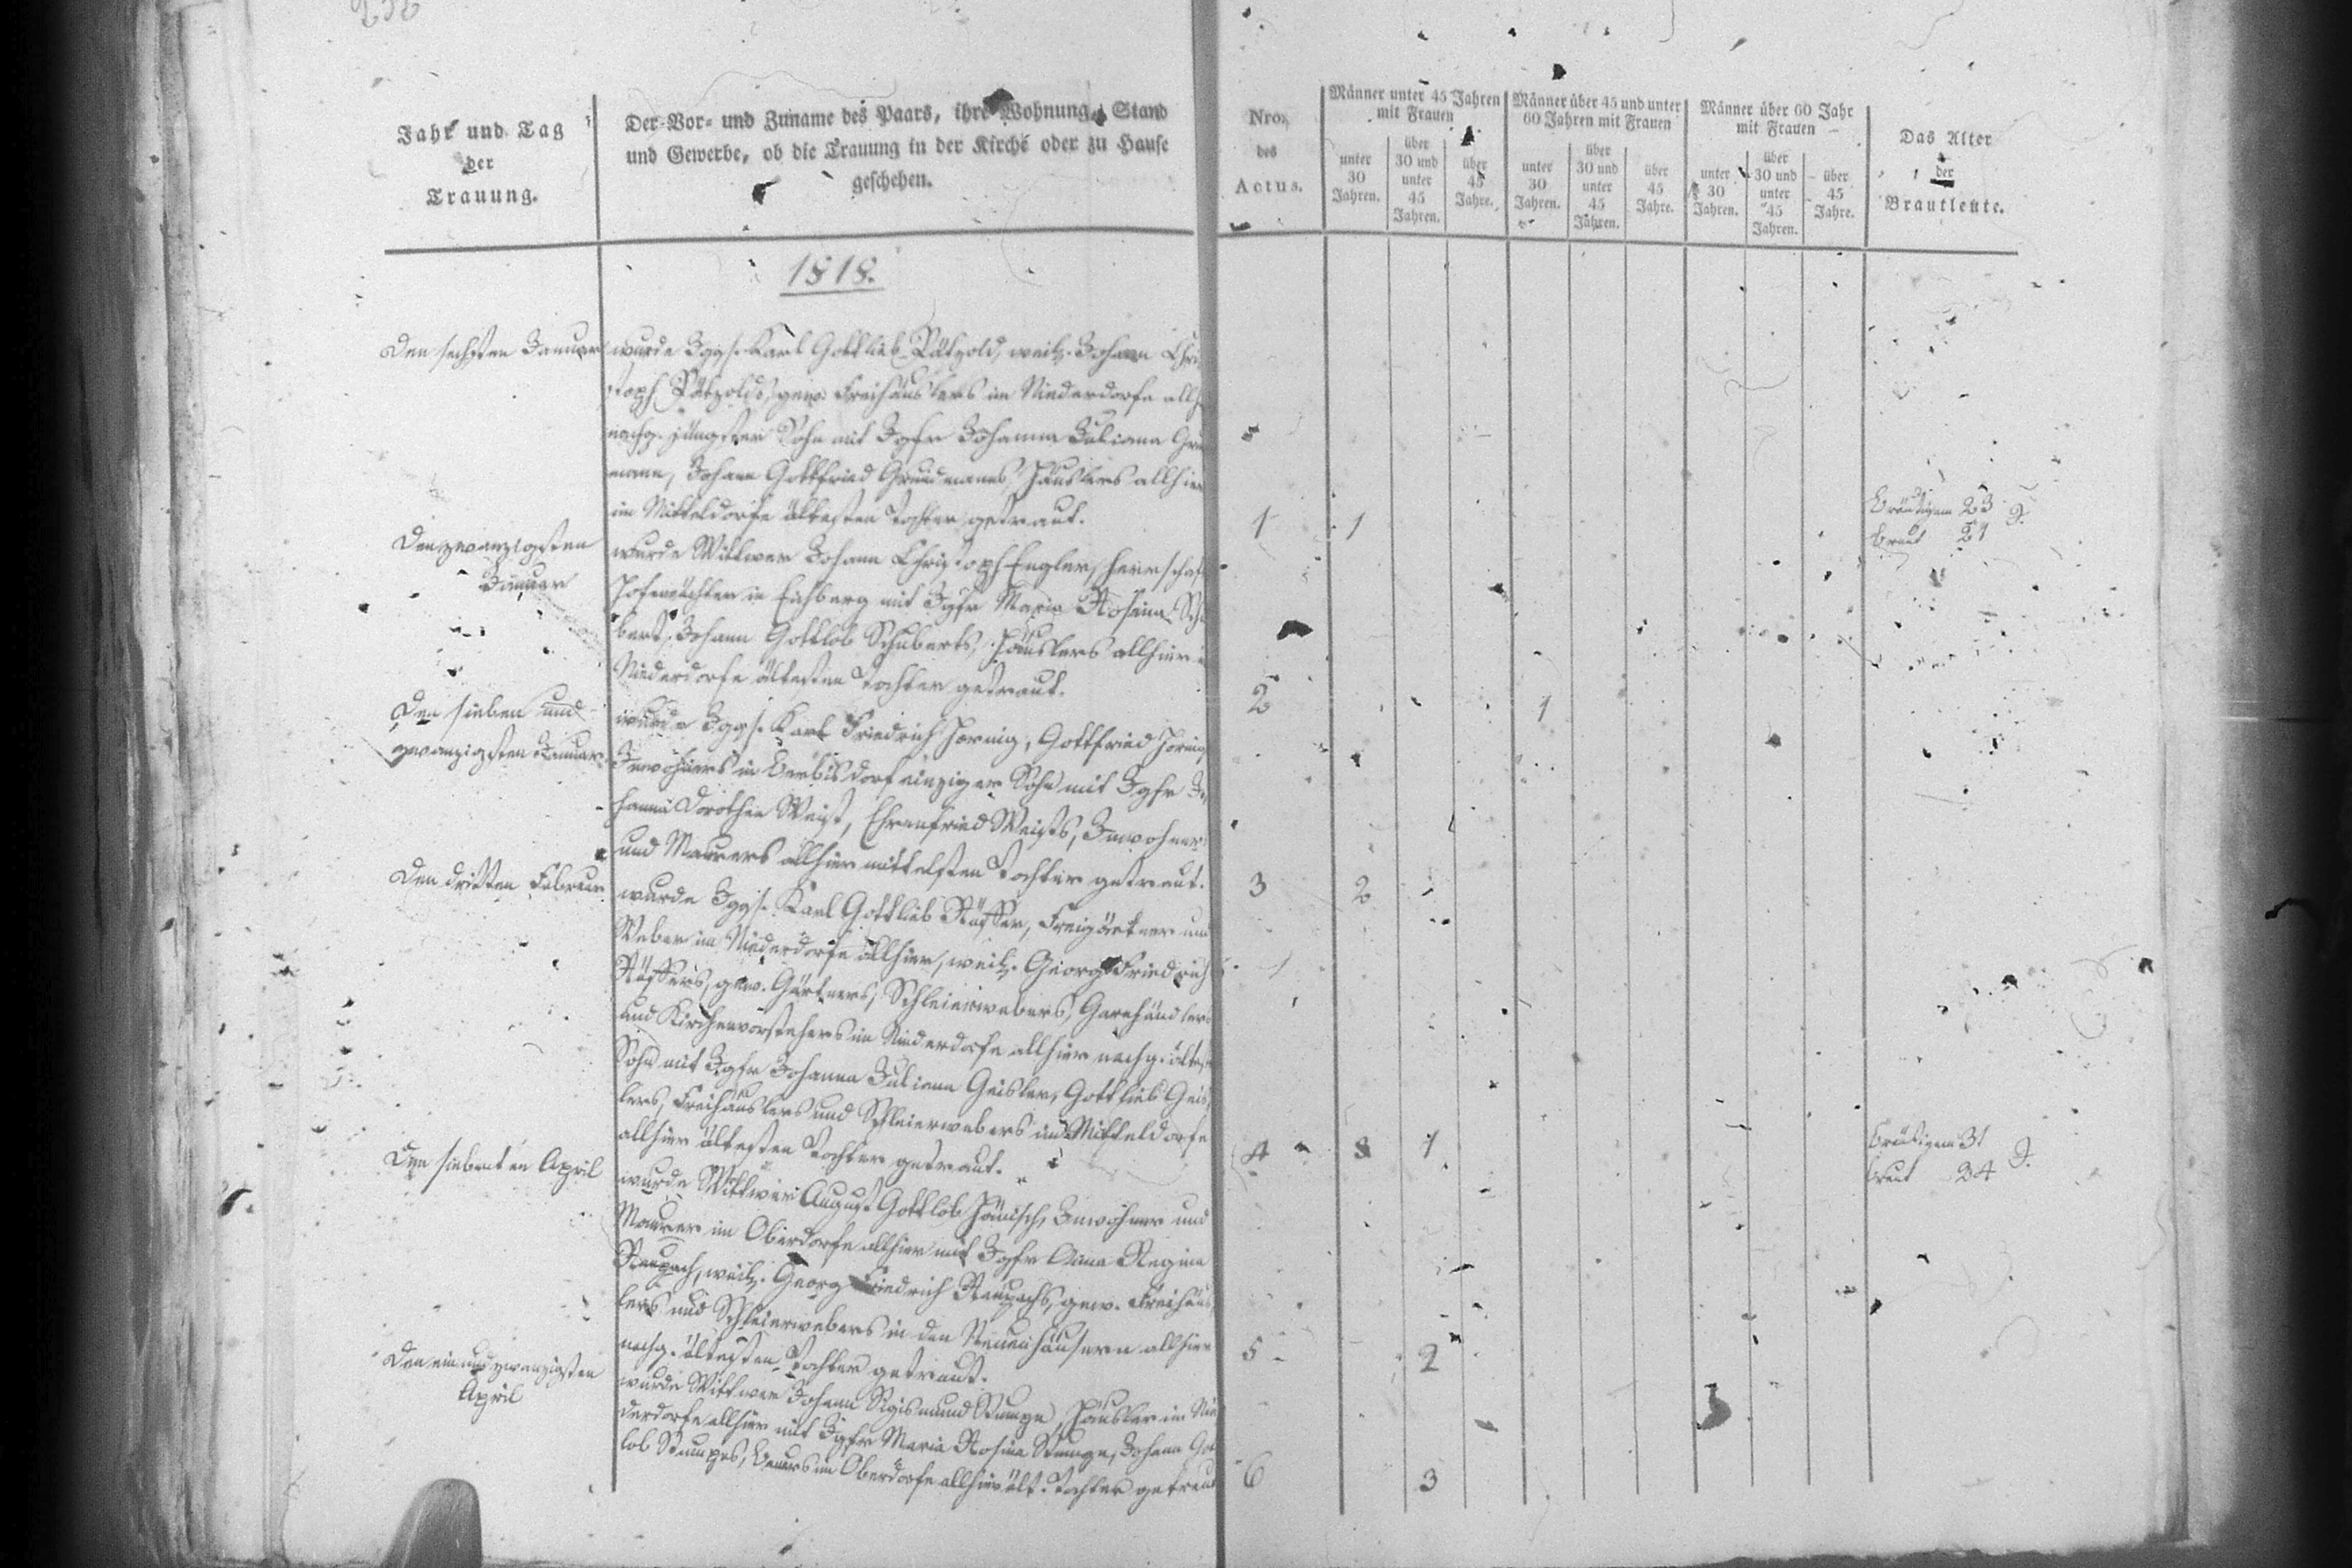 Jahr und Tag
der
Trauung.
Der Vor- und Zuname des Paars, ihre Wohnung, Stand
und Gewerbe, ob die Trauung in der Kirche oder zu Hause
geschehen.
Nro.
des
Actus.
Männer unter 45 Jahren
mit Frauen
unter
30
Jahren.
über
30 und
unter
45
Jahren.
über
45
Jahre.
Männer über 45 und unter
60 Jahren mit Frauen
unter
30
Jahren.
über
30 und
unter
45
Jahren.
über
45
Jahre.
Männer über 60 Jahr
mit Frauen
unter
30
Jahren.
über
30 und
unter
45
Jahren.
über
45
Jahre.
Das Alter
der
Brautleute.
1818.
Den sechsten Januar
wurde Jggs. Karl Gottlieb Pätzold, weil. Johann Chri
stoph Pätzolds, gew. Freihäuslers im Niederdorfe allh
nachg. jüngster Sohn mit Jgfr Johanna Juliana
mann, Johann Gottfried Grudmanns, Häuslers allhier
im Mitteldorfe ältesten Tochter getraut.
1 1
Bräutigam 23 J.
Braut 21
Den zwanzigsten
Januar
wurde Wittwer Johann Christoph Engler, herrschaft
Hofewächter in Eichberg mit Jgfr Maria Rosina Schu
bert, Johann Gottlob Schuberts, Häuslers allhier
Niederdorfe ältesten Tochter getraut.
2 1
Den sieben und
zwanzigsten Januar
wurde Jggs. Karl Friedrich Hornig, Gottfried Hornig
Inwohners in Berbisdorf einziger Sohn mit Jgfr Jo
hanna Dorothea Weist, Ehrenfried Weists, Inwohners
und Maurers allhier mittelsten Tochter getraut.
3 2
Den dritten Februar
wurde Jggs. Karl Gottlieb Röffer, Freigärtner und
Weber im Niederdorfe allhier, weil. Georg Friedrich
Röffers, gew. Gärtners, Schleierwebers, Garnhändlers
und Kirchenvorstehers im Niederdorfe allhier nachg. ältest
Sohn mit Jgfr Johanna Juliana Geisler, Gottlieb Geis
lers, Freihäuslers und Schleierwebers im Mitteldorfe
allhier ältesten Tochter getraut.
4 3 1
Bräutigam 31 J.
Braut 34
Den siebenten April
wurde Wittwer August Gottlob Jänisch, Inwohner und
Maurer im Oberdorfe allhier mit Jgfr Anna Regina
Raupach, weil. Georg Friedrich Raupachs, gew. Freihäus
lers und Schleierwebers in den Neuenhäusern allhier
nachg. ältesten Tochter getraut.
5 2
Den einundzwanzigsten
April
wurde Wittwer Johann Sigismund Stumpe, Häusler im Nie
derdorfe allhier mit Jgfr Maria Rosina Stumpe, Johann Got
lob Stumpes, Bauers im Oberdorfe allhier ält. Tochter getraut
6 3